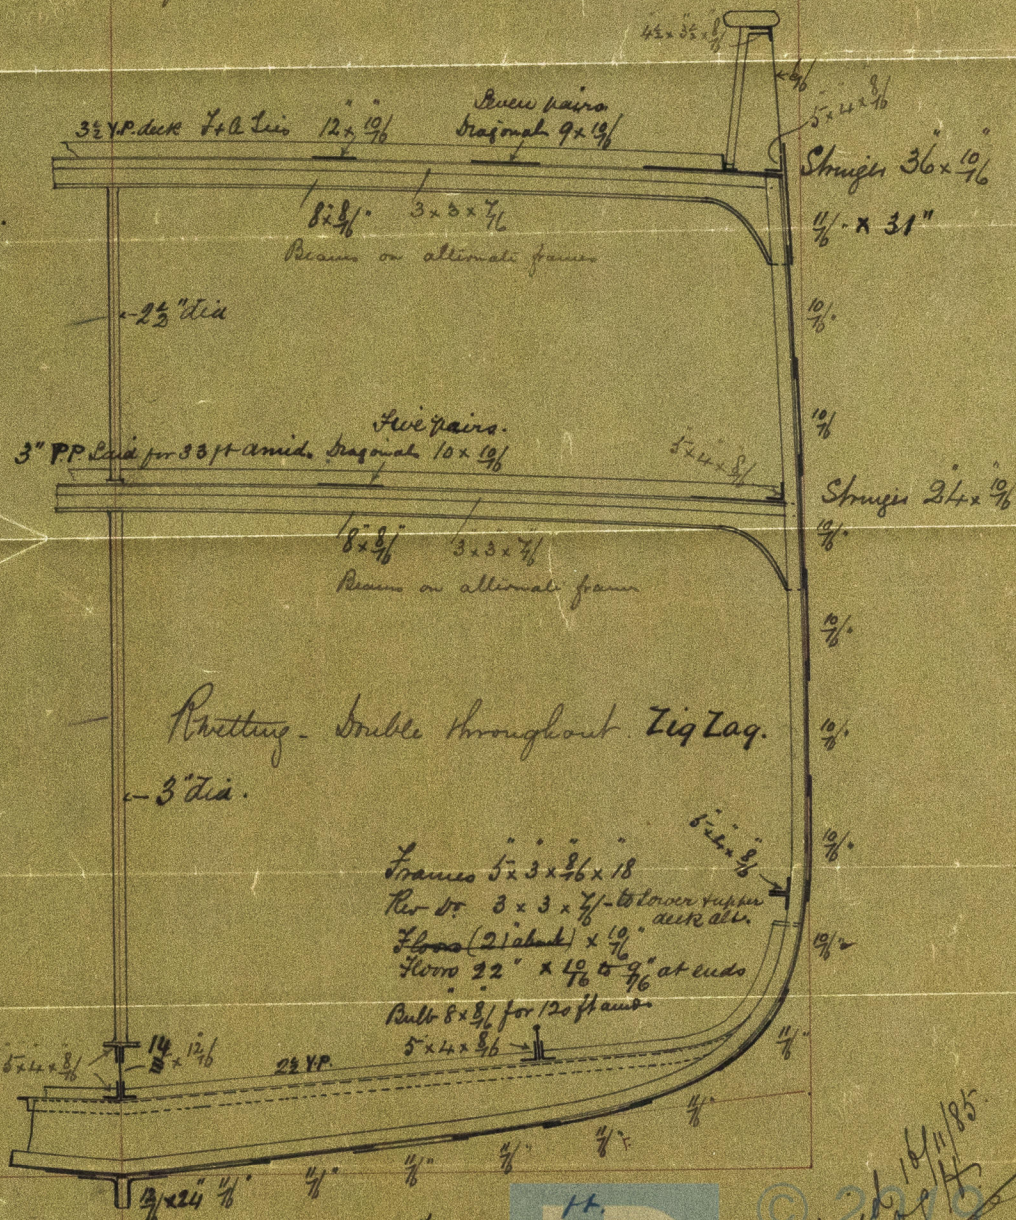 4½ × 3½ × 8/16
6/16
5 × 4 × 8/16
3½ Y.P. deck F & A Ties 12" × 10/16"
Seven pairs
Diagonals 9 × 10/16
Stringer 36" × 10/16"
8" × 8/16" 3 × 3 × 7/16
11/16" × 31"
Beams on alternate frames
2½" dia
10/16"
10/16
Five pairs.
3" P.P. Laid for 33 ft amid. Diagonals 10 × 10/16
5 × 4 × 8/16
Stringer 24" × 10/16"
10/16"
8" × 8/16" 3 × 3 × 7/16
Beams on alternate frames
10/16"
Rivetting - Double throughout Zig Zag.
10/16"
3" dia.
5" × 4" × 8/16"
10/16"
Frames 5" × 3" × 8/16" × 18"
Rev Do 3 × 3 × 7/16 - to lower & upper
deck alt.
Floors (21 × 10/16"
10/16"
Floors 22" × 10/16 to 9/16" at ends
Bulb 8" × 8/16" for 120 ft amids
5 × 4 × 8/16
11/16"
5" × 4" × 8/16"
14 × 12/16
2½ Y.P.
11/16"
11/16"
11/16"
11/16"
11/16"
11/16"
12/16 × 24"
16/11/85
ft.
© 2019